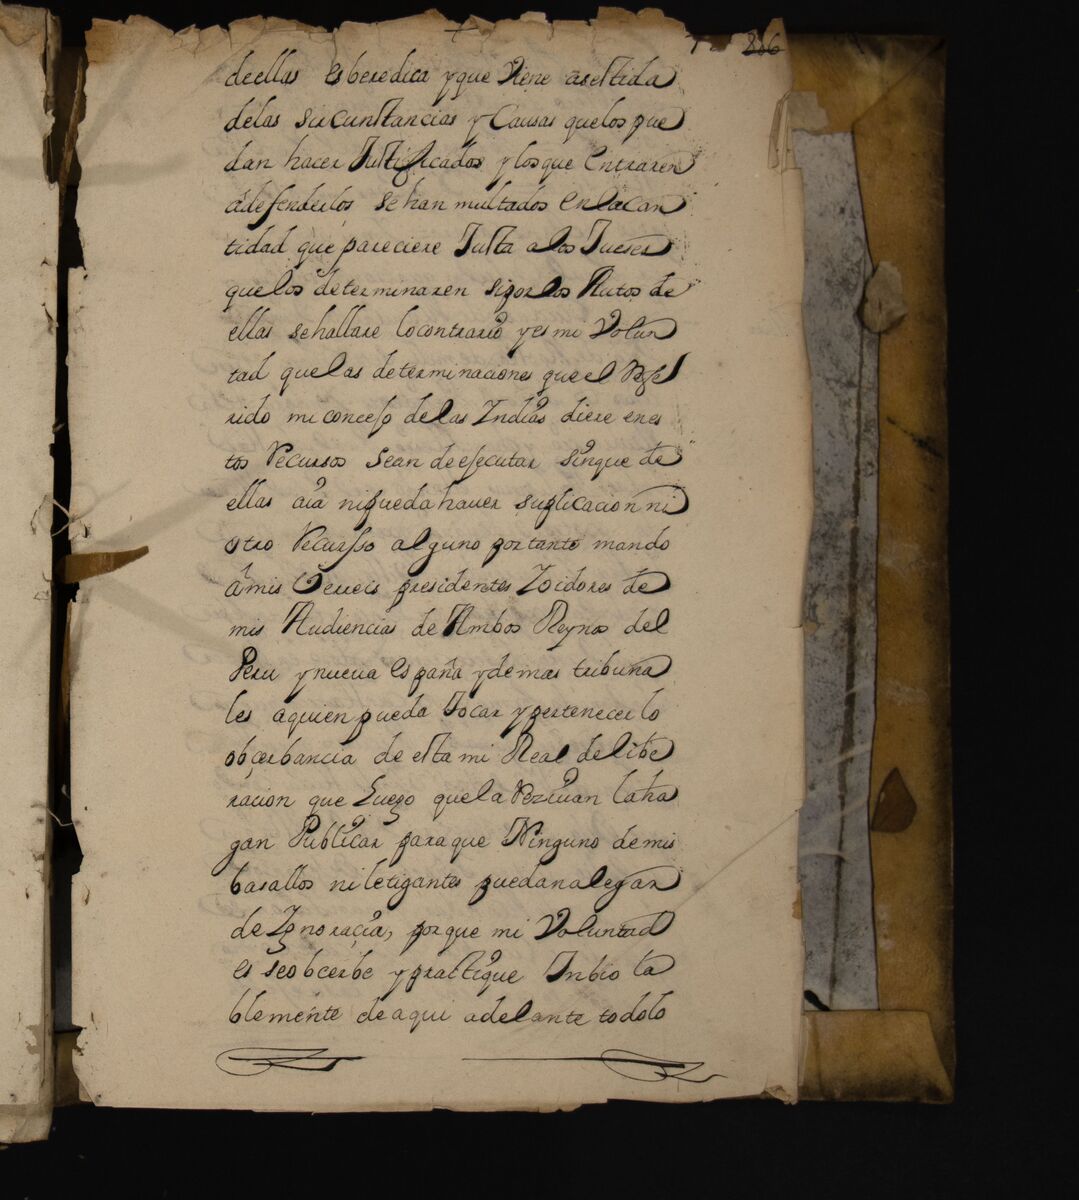 886
de ellas es beredica y que viene asestida
delas sircunstancias y Causas quelos pue
dan hacer Justificados y los que entraren
adefenderlos se han multados en la can
tidad que pareciere Justa a los Jueses
que los determinaren si por los Autos de
ellas se hallare lo contrario y es mi Volun
tad que las determinaciones que el Refe
rido mi concejo de las Indias diere en es
tos Recursos sean de esecutar sin que de
ellas aia ni pueda haver suplicacion ni
otro Recursso alguno por tanto mando
a mis Verreis presidentes Y oidores de
mis Audiencias de Ambos Reynos del
Peru y nueva españa y demas tribuna
les a quien pueda Tocar y pertenecer lo
obcerbancia de esta mi Real delibe
racion que Luego que la Rezivan la ha
gan Publicar para que Ninguno de mis
basallos ni letigantes puedan alegar
de Ygnoraçia, porque mi Voluntad
es se obcerbe y practique Inbio la
blemente de aqui adelante todo lo